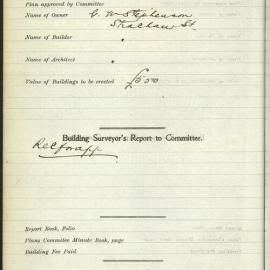 Plan approved by Committee
Name of Owner G. W. Stephenson
Strachan St.
Name of Builder "
Name of Architect "
Value of Buildings to be erected £550
Building Surveyor's Report to Committee.
Rec for app
Report Book, Folio
Plans Commitee Minute Book, page
Building Fee Paid